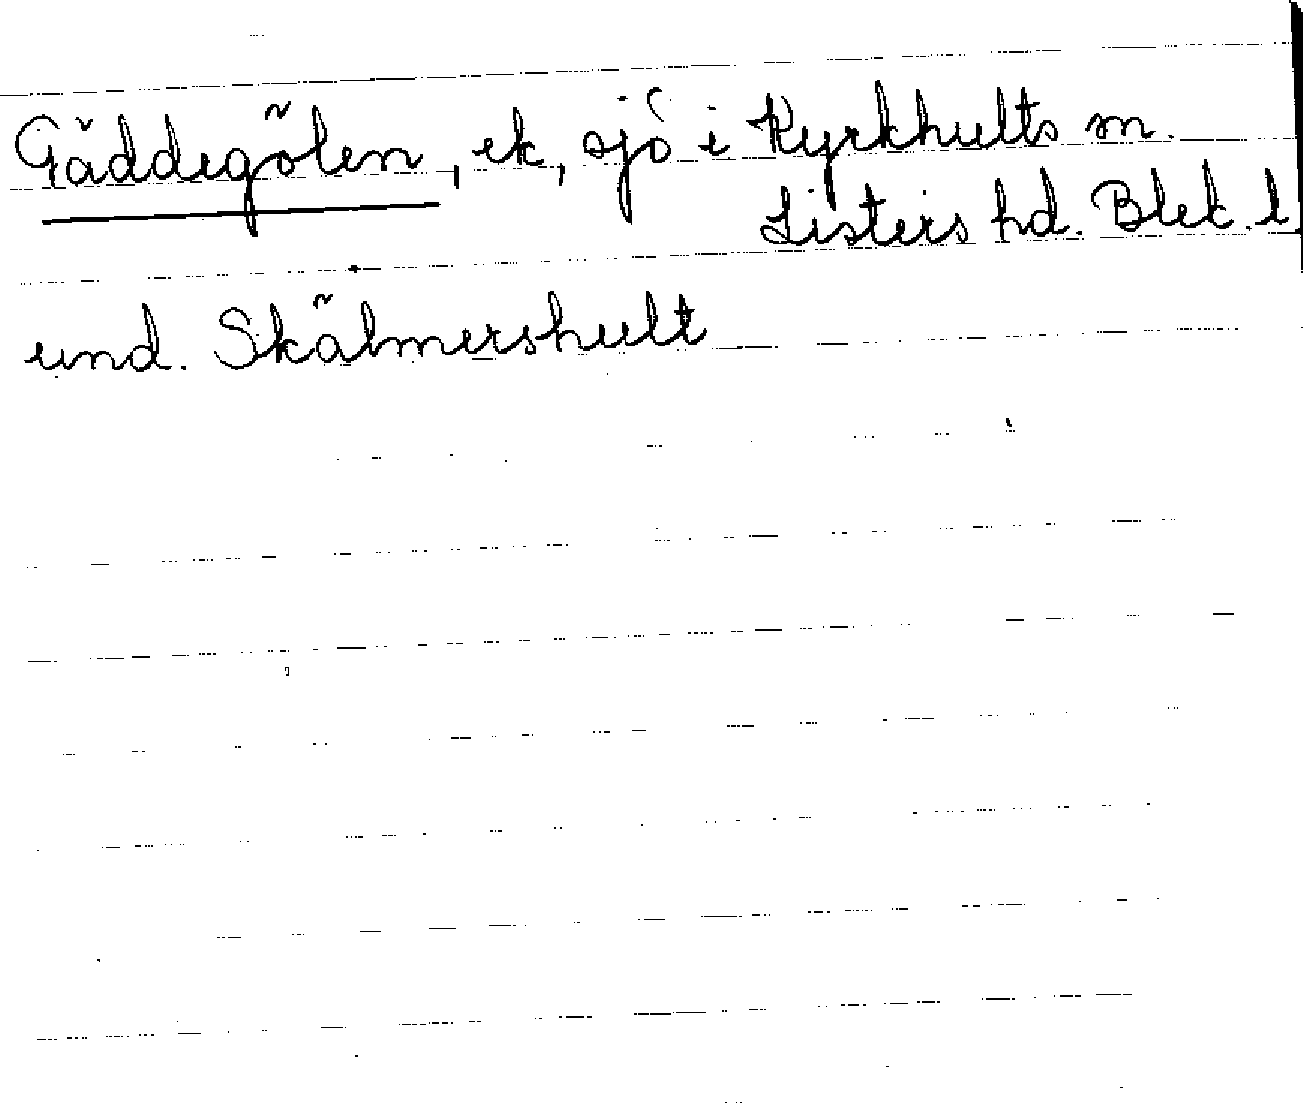 Gäddegölen, ek, sjö i Kyrkhults sn.
Listers hd. Blek. l
und. Skälmershult